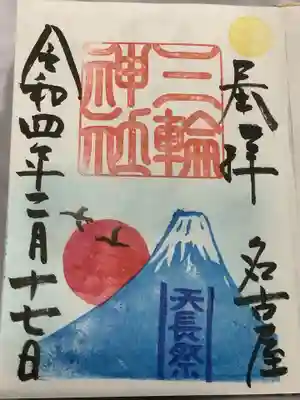 拝
名古屋
三輪
神社
天長祭
令和四年二月十七日